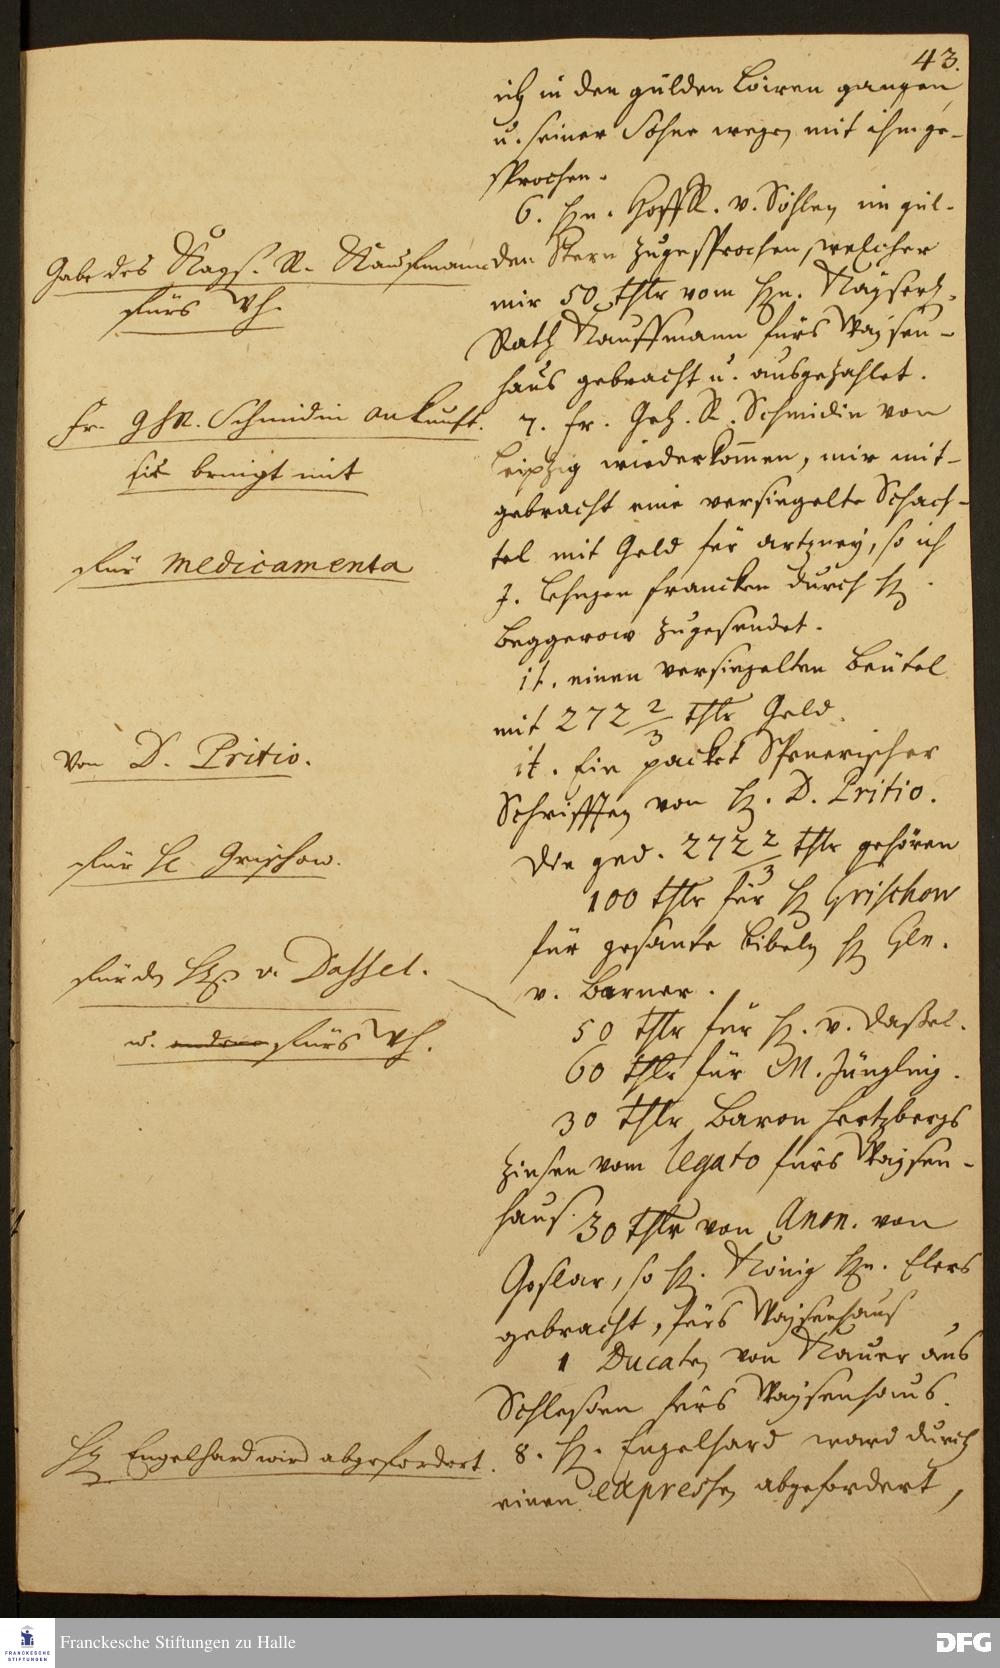 43.
ich in den gülden Löwen gangen,
u. seiner Söhne wegen mit ihm ge-
sprochen.
6. Hn. HoffR. v. Söhlen im gül-
den Stern zugesprochen, welcher
mir 50 Thlr vom Hn. Kayserl.
Rath Kauffmann fürs Waysen-
haus gebracht u. ausgezahlet.
7. Fr. Geh. R. Schmidin von
Leipzig wiederkommen, mir mit-
gebracht eine versiegelte Schach-
tel mit Geld für artzney, so ich
francken durch H.
Beggerow zugesendet.
it. einen versiegelten Beütel
mit 272 2/3 Thlr Geld.
it. Ein packet Spenerischer
Schrifften von H. D. Pritio.
Die ged. 272 2/3 Thlr gehören
100 Thlr für H Grischow
für gesante Bibeln H Gen.
v. Barner.
50 Thlr für H. v. Daßel.
60 Thlr für M. Jüngling.
30 Thlr Baron Hertzbergs
Zinsen vom legato fürs Waysen-
haus. 30 Thlr von Anon. von
Goslar, so H. König Hn. Elers
gebracht, fürs Waysenhaus
1 Ducaten von Nauer aus
Schlesien fürs Waysenhaus.
8. H. Engelhard ward durch
einen expressen abgefordert,
Gabe des Kays. R. Kaufmann
fürs Wh.
Fr. GhR. Schmidin ankunft.
sie bringt mit
für medicamenta
Von D. Pritio.
für H. Grischow.
für den H. v. Dassel.
u. fürs Wh.
H Engelhard wird abgefordert.
FRANCKESCHE
STIFTUNGEN
Franckesche Stiftungen zu Halle
DFG